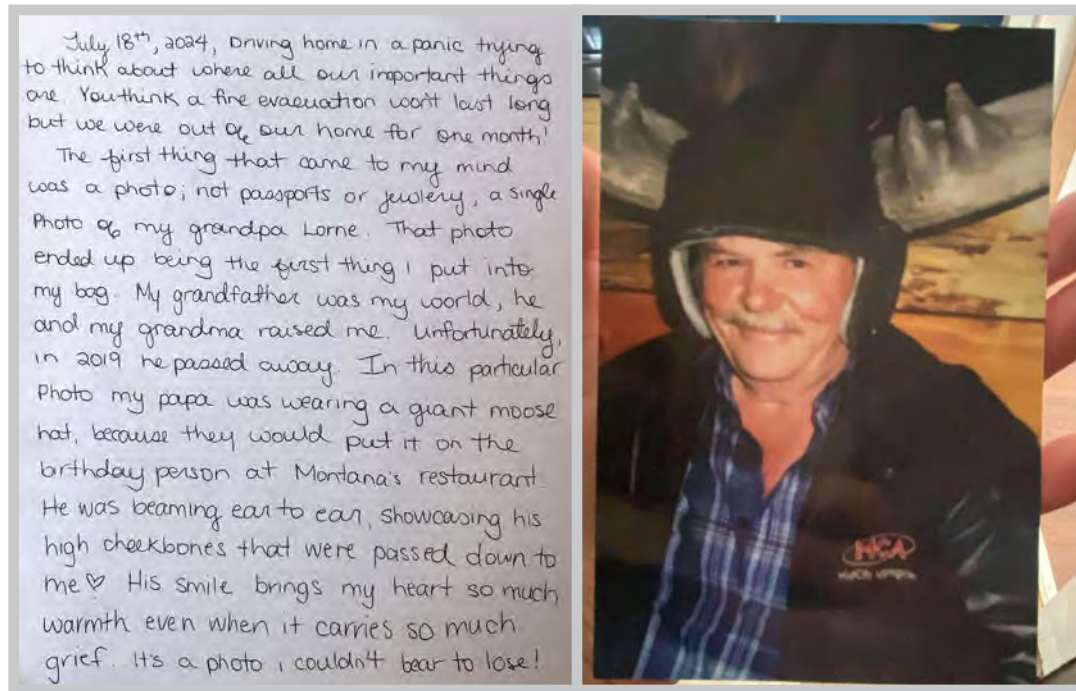 July 18th, 2024, Driving home in a panic trying
to think about where all our important things
are. You think a fire evacuation won't last long
but we were out of our home for one month!
The first thing that came to my mind
was a photo; not passports or jewlery, a single
Photo of my grandpa Lorne. That photo
ended up being the first thing I put into
my bag. My grandfather was my world, he
and my grandma raised me. Unfortunately,
in 2019 he passed away. In this particular
Photo my papa was wearing a giant moose
hat, because they would put it on the
birthday person at Montana's restaurant.
He was beaming ear to ear, showcasing his
high cheekbones that were passed down to
me♡ His smile brings my heart so much
warmth even when it carries so much
grief. It's a photo i couldn't bear to lose!